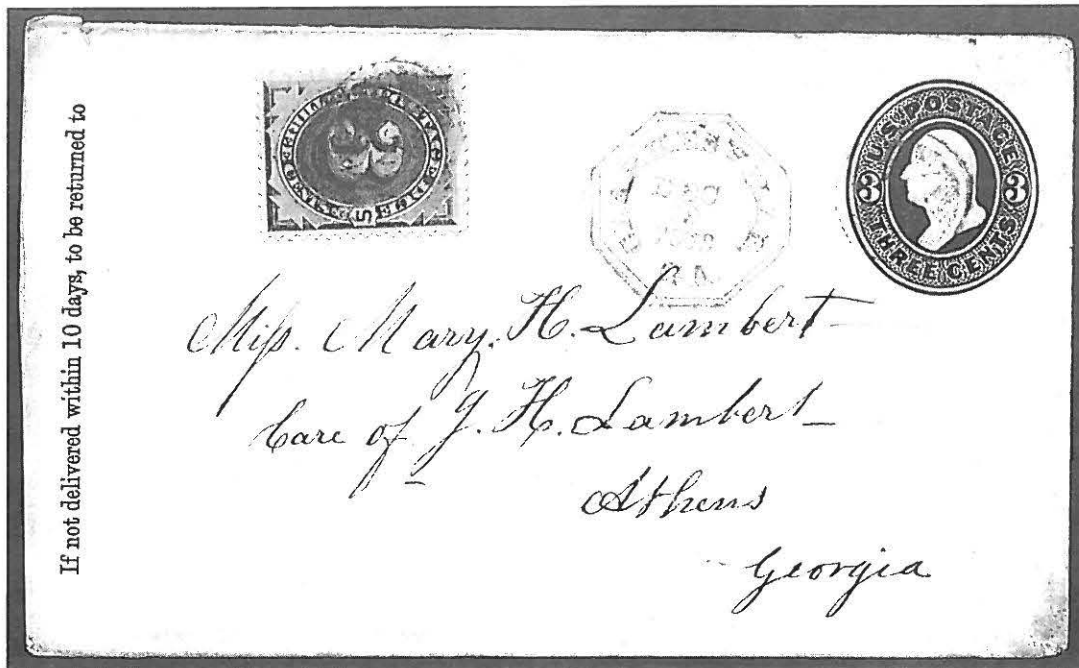 If not delivered within 10 days, to be returned to
U.S. POSTAGE
3 3
THREE CENTS
DEC
Miss. Mary. H. Lambert
Care of J. H. Lambert
Athens
Georgia